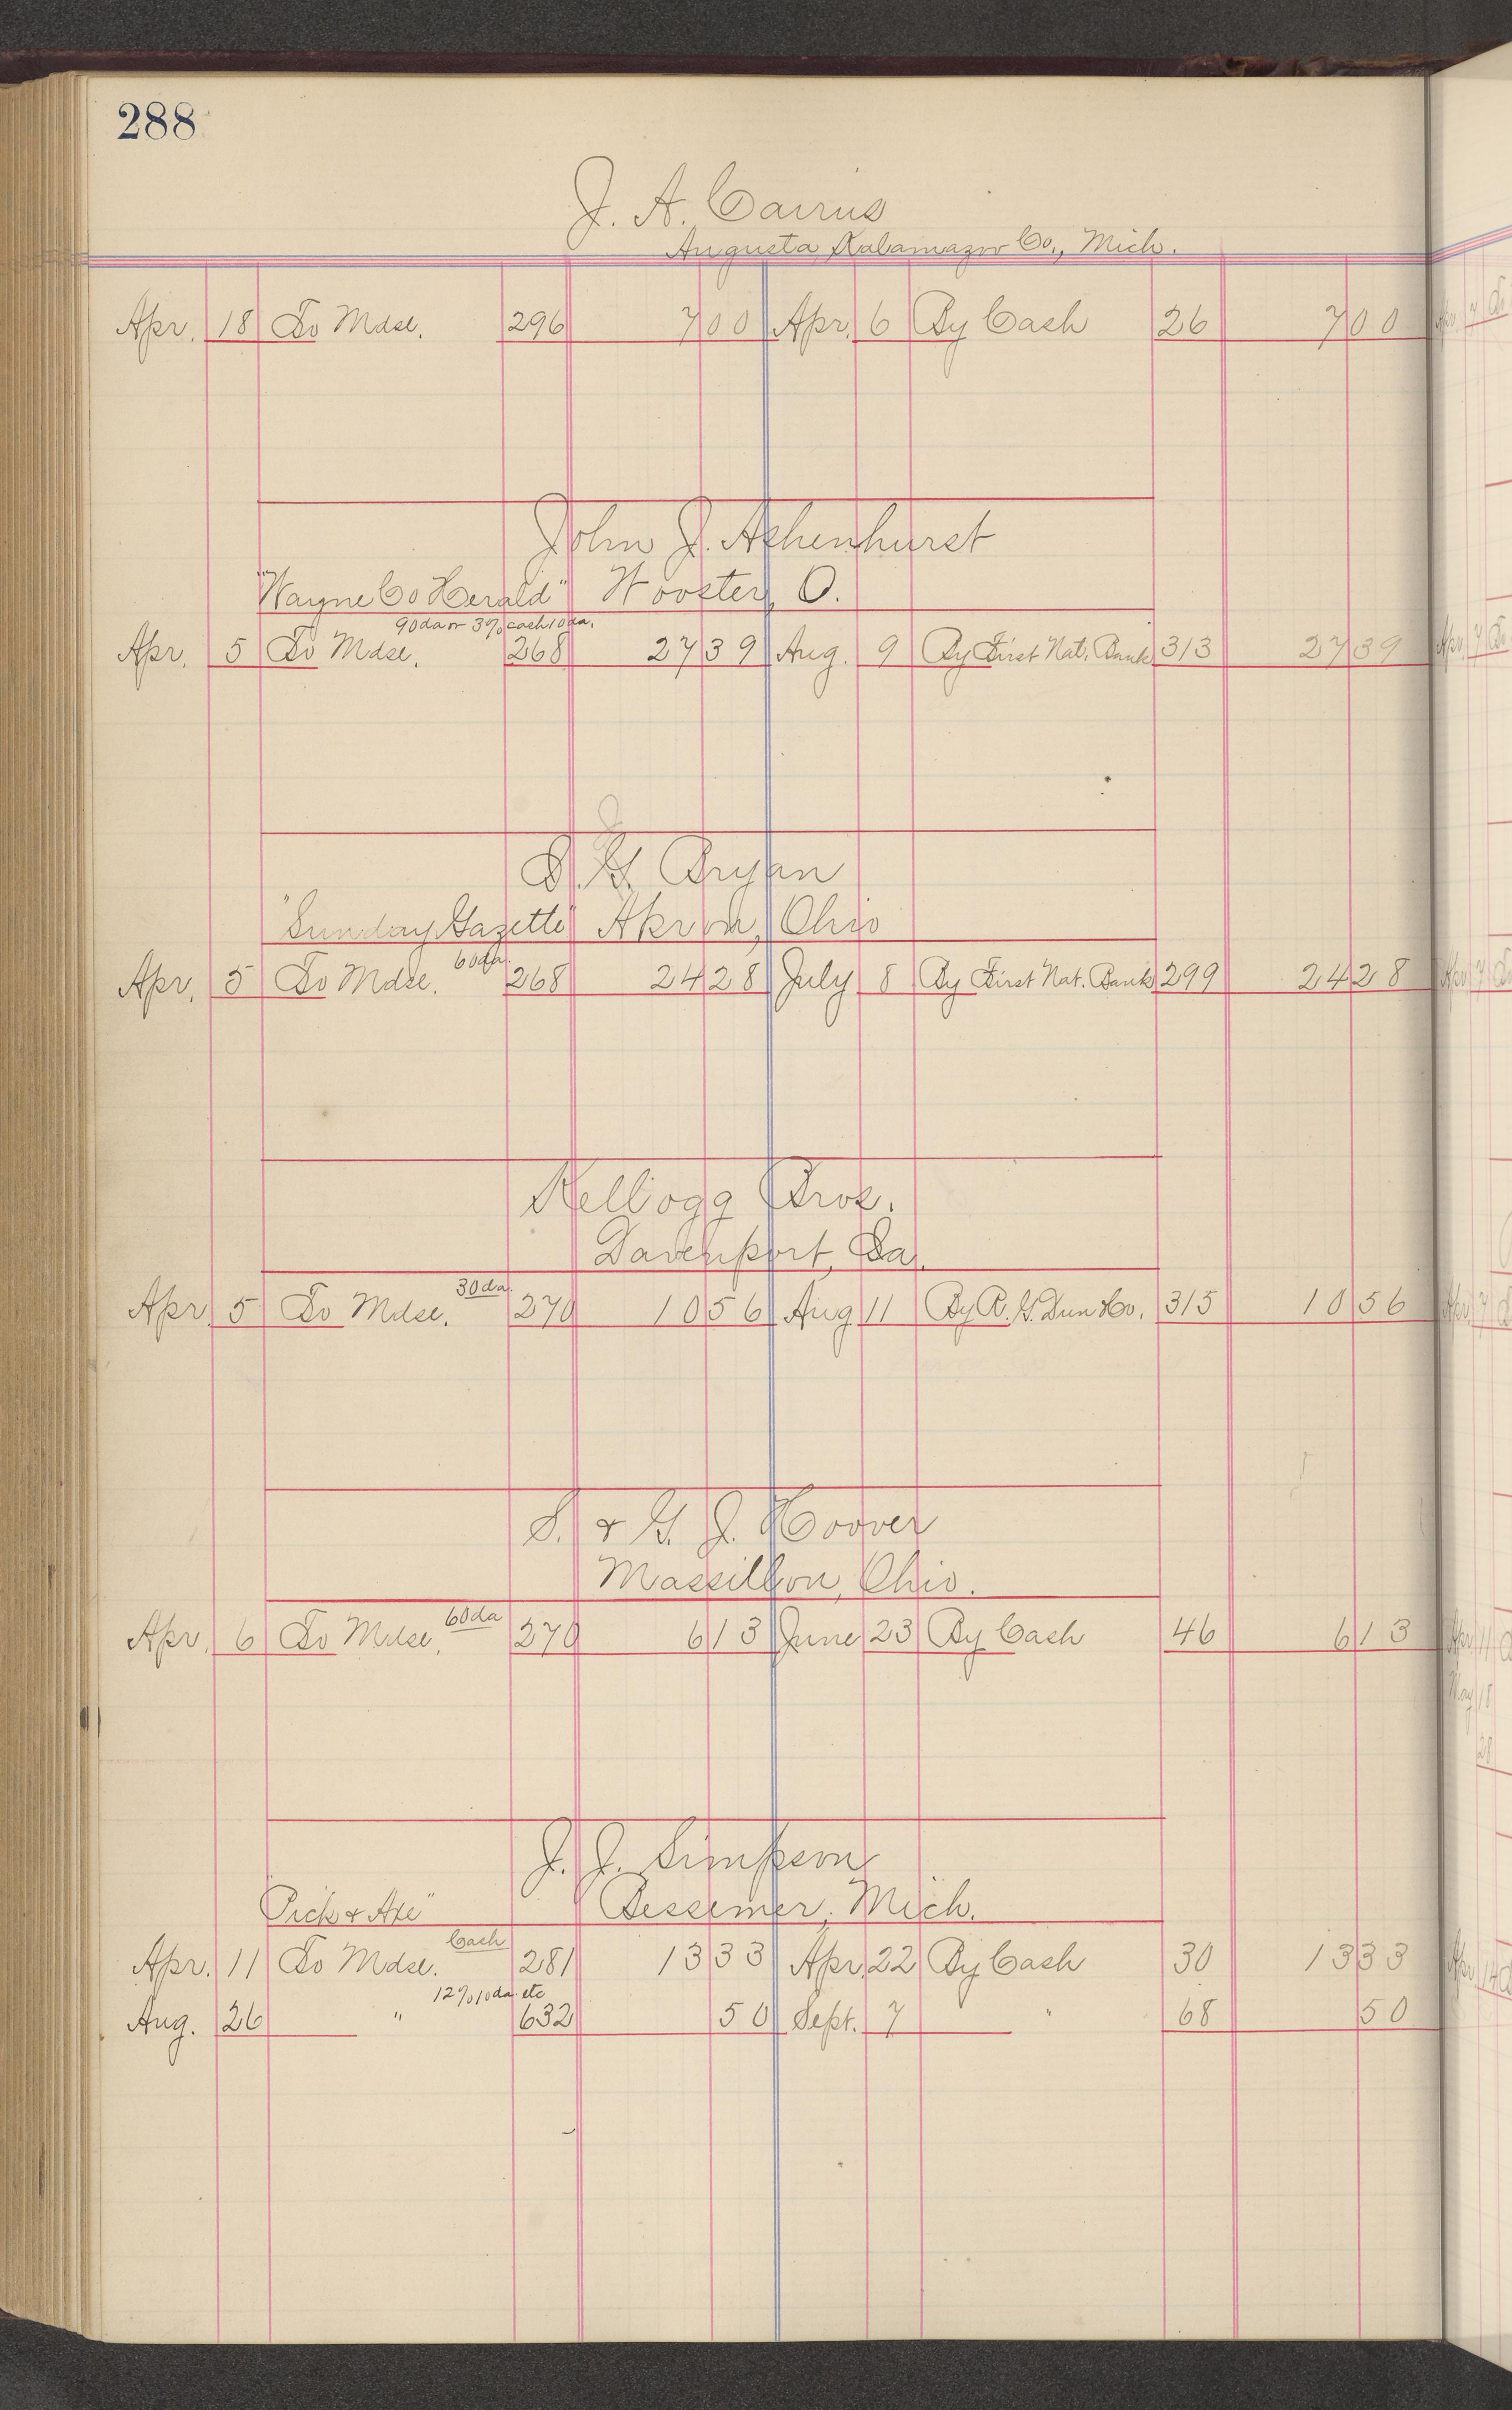 288
J. A. Cairns
Augusta, Kalamazoo Co., Mich.
Apr. 18 To Mdse. 296 7 00 Apr. 6 By Cash 26 7 00
John J. Ashenhurst
"Wayne Co Herald" Wooster, O.
90 da or 3% cash 10 da.
Apr. 5 To Mdse. 268 27 39 Aug. 9 By First Nat. Bank 313 27 39
S. G. Bryan
"Sunday Gazette" Akron, Ohio
60 da.
Apr. 5 To Mdse. 268 24 28 July 8 By First Nat. Bank 299 24 28
Kellogg Bros.
Davenport, Ia.
30 da.
Apr. 5 To Mdse. 270 10 56 Aug 11 By R. G. Dun & Co. 315 10 56
S. & G. J. Hoover
Massillon, Ohio.
60 da
Apr. 6 To Mdse. 270 6 13 June 23 By Cash 46 6 13
J. J. Simpson
"Pick & Axe" Bessemer, Mich.
Cash
Apr. 11 To Mdse. 281 13 33 Apr. 22 By Cash 30 13 33
12% 10 da. etc
Aug. 26 " 632 50 Sept. 7 " 68 50